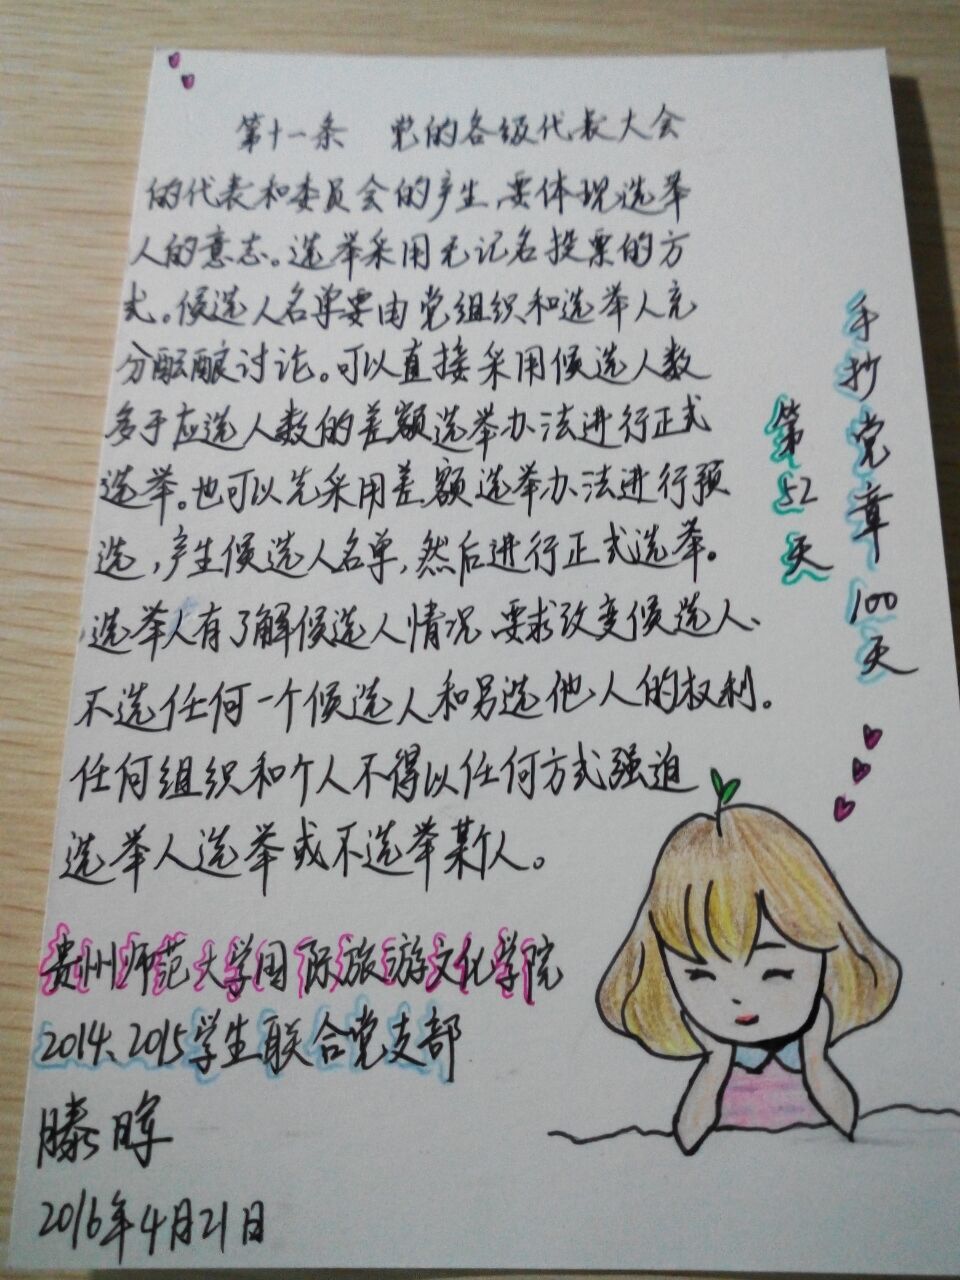 第十一条 党的各级代表大会
的代表和委员会的产生,要体现选举
人的意志。选举采用无记名投票的方
式。候选人名单要由党组织和选举人充
分酝酿讨论。可以直接采用候选人数
多于应选人数的差额选举办法进行正式
选举。也可以先采用差额选举办法进行预
选,产生候选人名单,然后进行正式选举。
选举人有了解候选人情况、要求改变候选人、
不选任何一个候选人和另选他人的权利。
任何组织和个人不得以任何方式强迫
选举人选举或不选举某个人。
贵州师范大学国际旅游文化学院
2014、2015学生联合党支部
滕晖
2016年4月21日
手抄党章100天
第52天